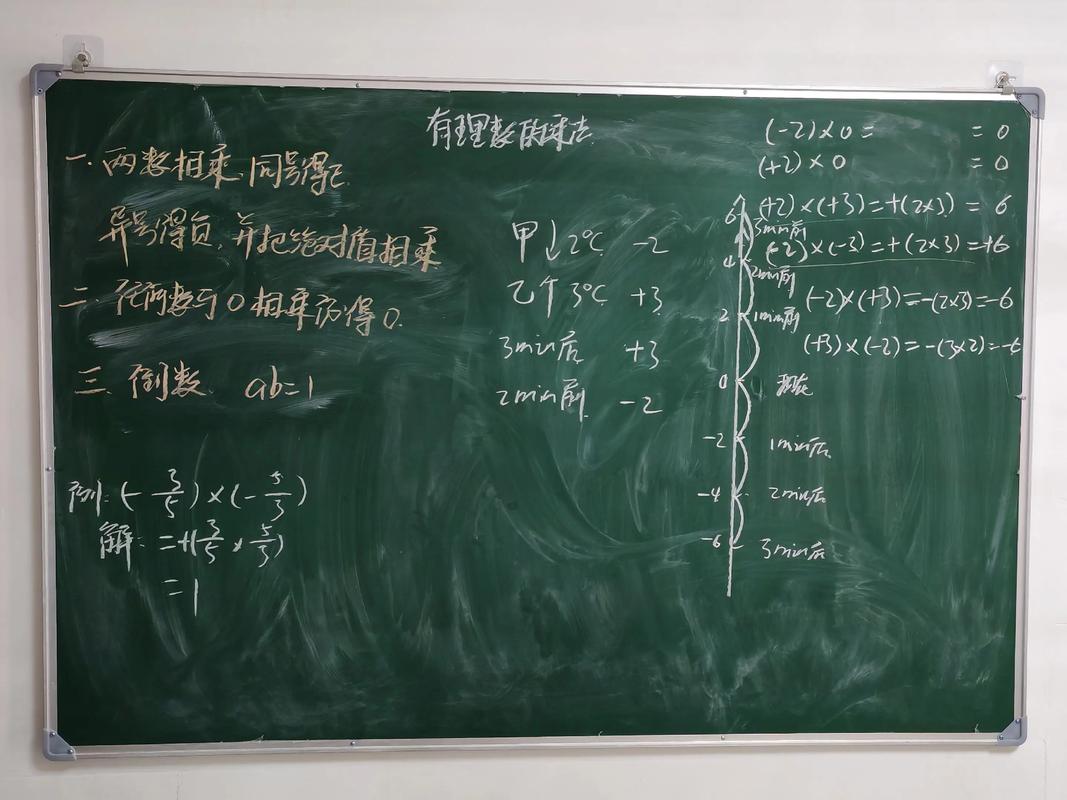 有理数的乘法
一.两数相乘,同号得正
异号得负,并把绝对值相乘
二.任何数与0相乘亦得0.
三.倒数. ab=1
例:(-3/5)×(-5/3)
解:=+(3/5×5/3)
=1
甲↓2℃ -2
乙个3℃ +3
3min后 +3
2min前 -2
6
3min前
4
2min前
2
1min前
0
现在
-2
1min后
-4
2min后
-6
3min后
(-2)×0= =0
(+2)×0 =0
(+2)×(+3)=+(2×3)=6
(-2)×(-3)=+(2×3)=+6
(-2)×(+3)=-(2×3)=-6
(+3)×(-2)=-(3×2)=-6